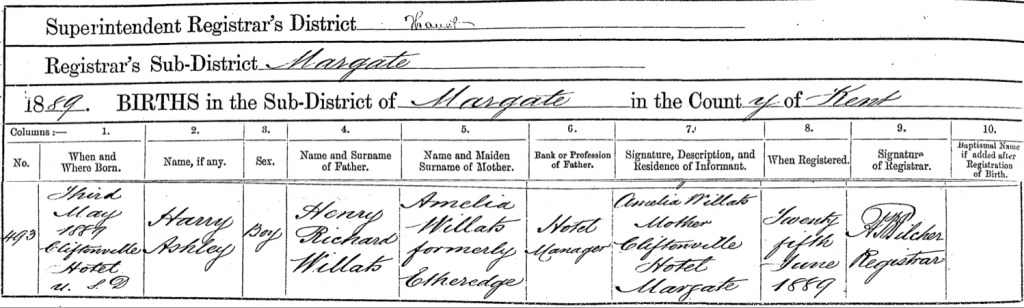 Superintendent Registrar's District Thanet
Registrar's Sub-District Margate
1889. BIRTHS in the Sub-District of Margate in the County of Kent
Columns:— 1. 2. 3. 4. 5. 6. 7. 8. 9. 10.
No. When and Where Born. Name, if any. Sex. Name and Surname of Father. Name and Maiden Surname of Mother. Rank or Profession of Father. Signature, Description, and Residence of Informant. When Registered. Signature of Registrar. Baptismal Name if added after Registration of Birth.
493
Third
May
1889
Cliftonville
Hotel
u. S D
Harry
Ashley
Boy
Henry
Richard
Willats
Amelia
Willats
formerly
Etheredge
Hotel
Manager
Amelia Willats
Mother
Cliftonville
Hotel
Margate
Twenty
fifth
June
1889
Pilcher
Registrar